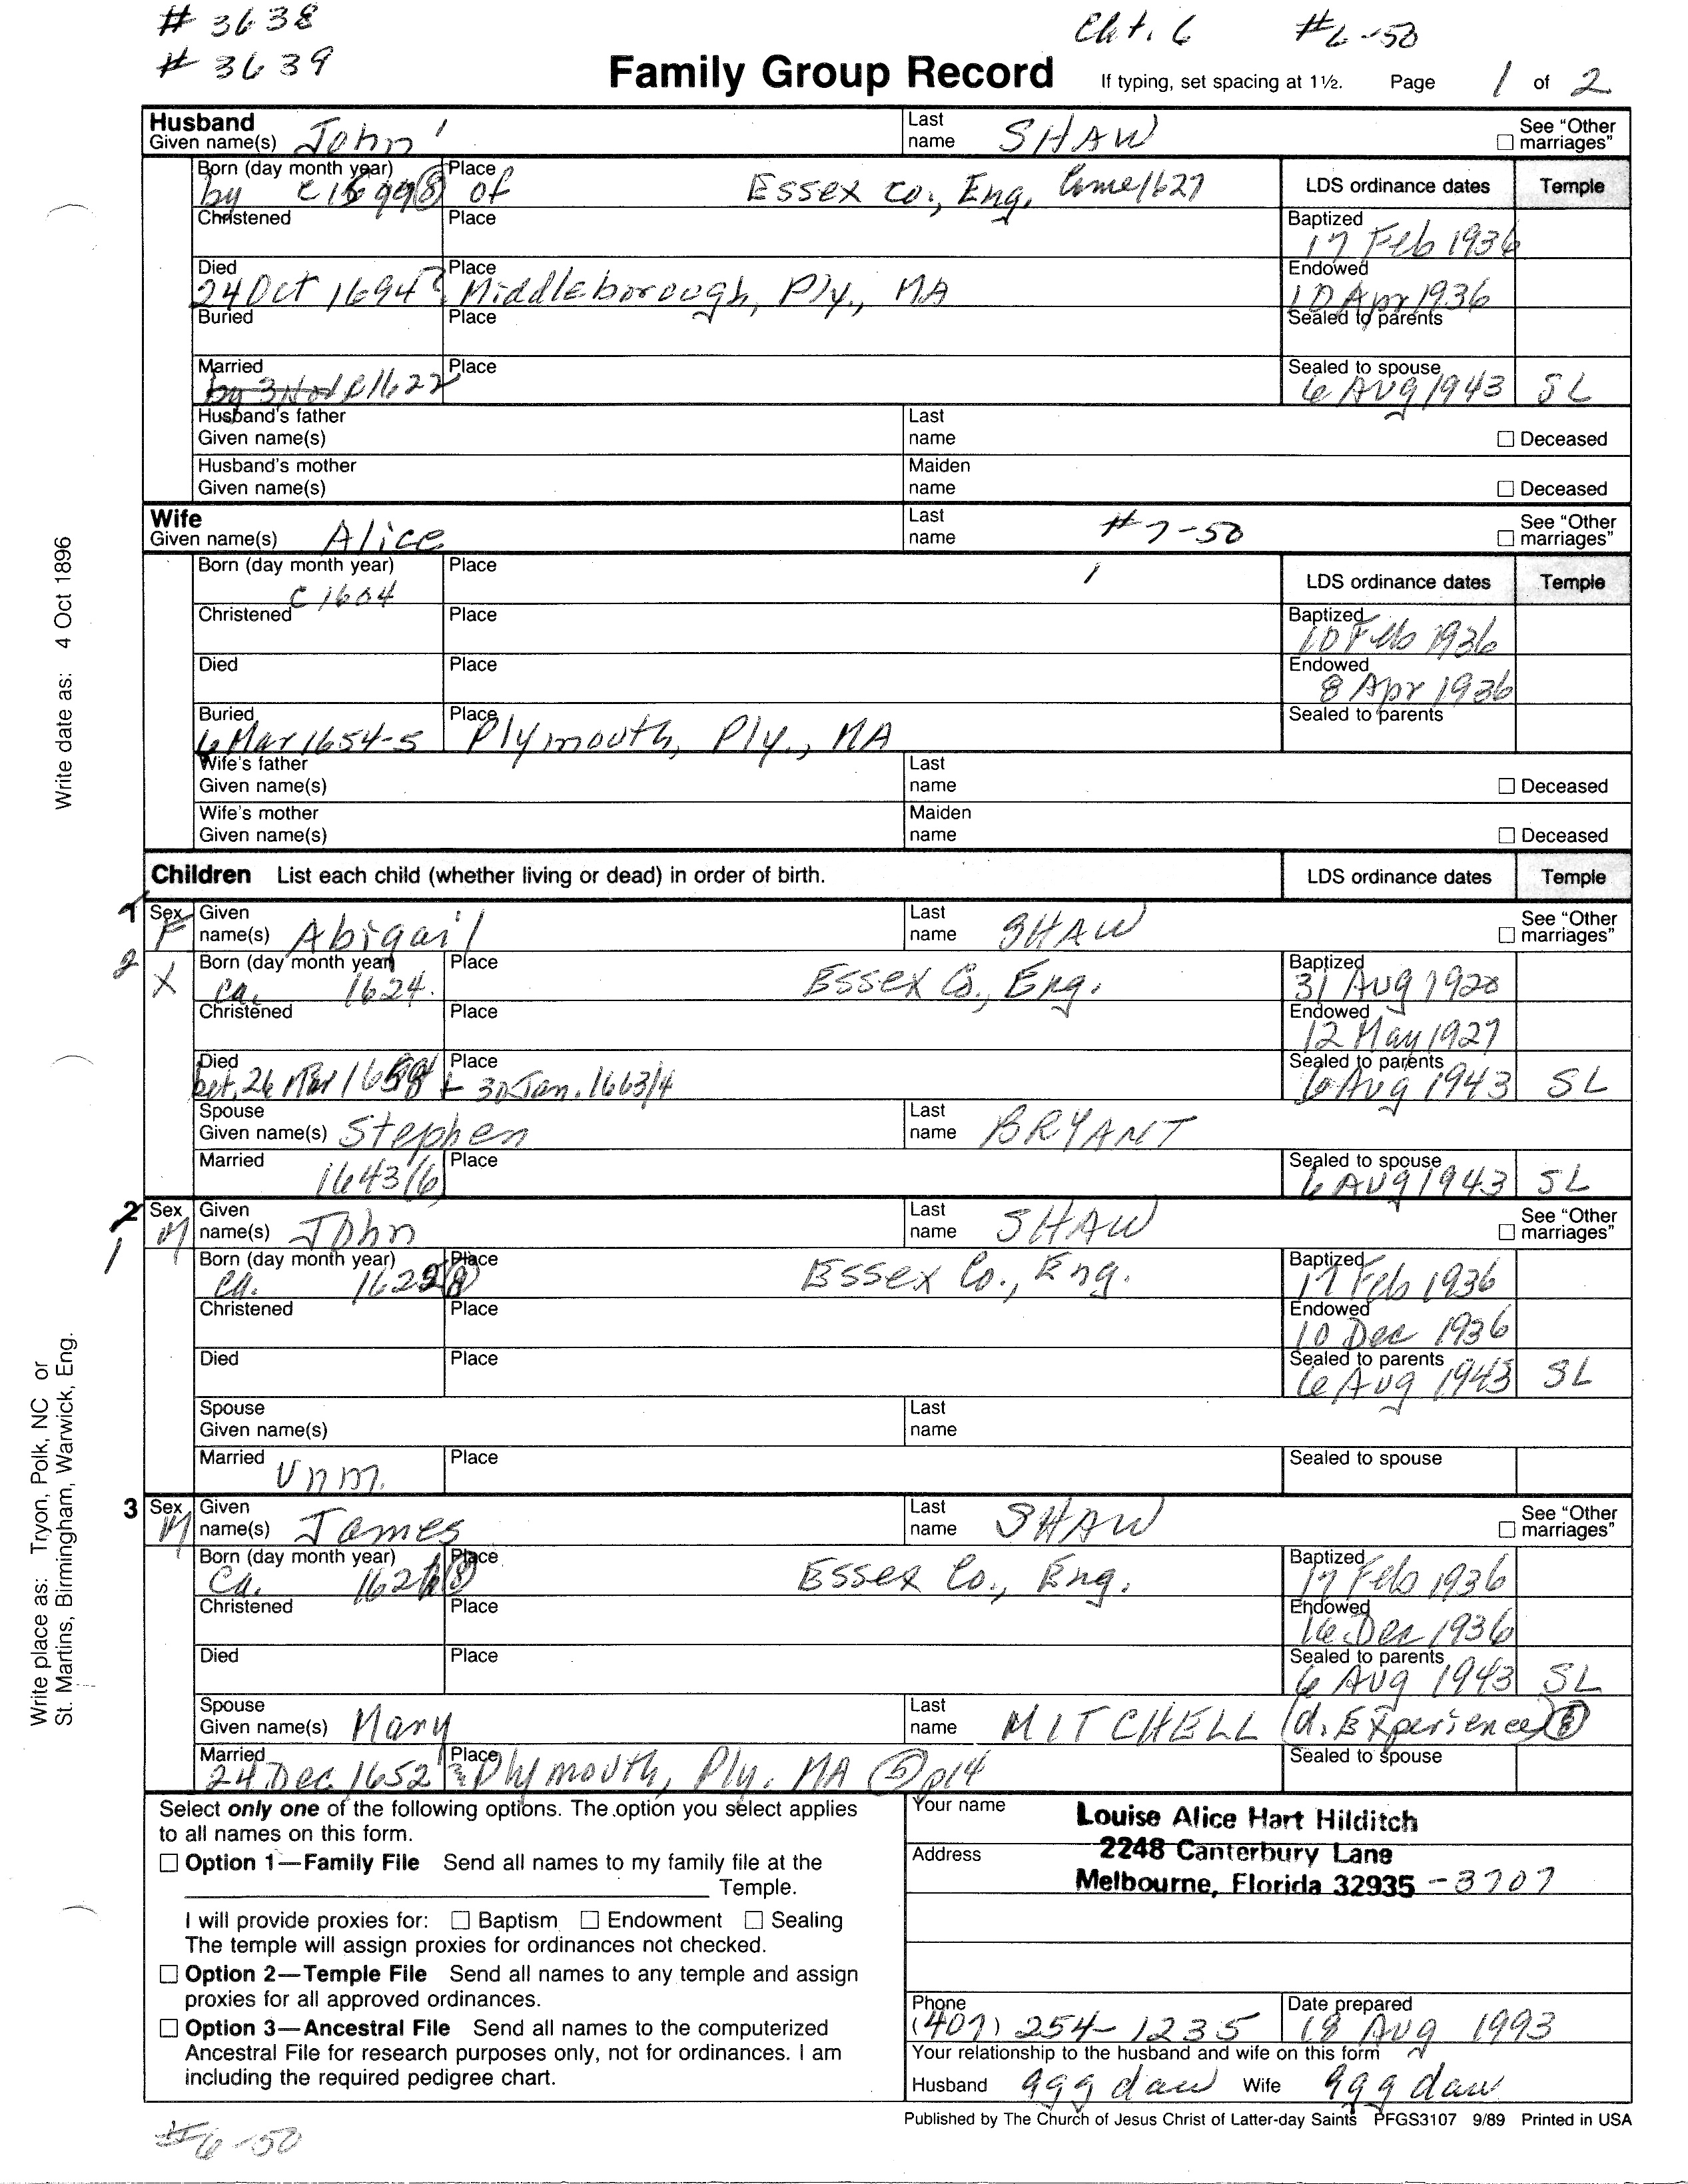 # 3638
Cht. 6 #6-50
# 3639
Family Group Record If typing, set spacing at 1½. Page 1 of 2
Husband
Given name(s) John Last name SHAW ☐ See "Other marriages"
Born (day month year) by Place of Essex co., Eng. Come 1627 LDS ordinance dates Temple
Christened Place Baptized 17 Feb 1936
Died 24 Oct 1694? Place Middleborough, Ply., MA Endowed 10 Apr 1936
Buried Place Sealed to parents
Married by 3 Nov C1622 Place Sealed to spouse 6 AUG 1943 SL
Husband's father
Given name(s) Last name ☐ Deceased
Husband's mother
Given name(s) Maiden name ☐ Deceased
Wife
Given name(s) Alice Last name #7-50 ☐ See "Other marriages"
Born (day month year) C 1604 Place LDS ordinance dates Temple
Christened Place Baptized 10 Feb 1936
Died Place Endowed 8 Apr 1936
Buried 6 Mar 1654-5 Place Plymouth, Ply., MA Sealed to parents
Wife's father
Given name(s) Last name ☐ Deceased
Wife's mother
Given name(s) Maiden name ☐ Deceased
Children List each child (whether living or dead) in order of birth. LDS ordinance dates Temple
1 Sex F Given name(s) Abigail Last name SHAW ☐ See "Other marriages"
2 X Born (day month year) ca. 1624. Place Essex Co., Eng. Baptized 31 Aug 1920
Christened Place Endowed 12 May 1927
Died bet. 26 Mar & 30 Jan. 1663/4 Place Sealed to parents 6 Aug 1943 SL
Spouse
Given name(s) Stephen Last name BRYANT
Married 1643/6 Place Sealed to spouse 6 AUG 1943 SL
2 1 Sex M Given name(s) John Last name SHAW ☐ See "Other marriages"
Born (day month year) ca. 1622 (8) Place Essex Co., Eng. Baptized 17 Feb 1936
Christened Place Endowed 10 Dec 1936
Died Place Sealed to parents 6 Aug 1943 SL
Spouse
Given name(s) Last name
Married Unm. Place Sealed to spouse
3 Sex M Given name(s) James Last name SHAW ☐ See "Other marriages"
Born (day month year) Ca. (8) Place Essex Co., Eng. Baptized 17 Feb 1936
Christened Place Endowed 16 Dec 1936
Died Place Sealed to parents 6 Aug 1943 SL
Spouse
Given name(s) Mary Last name MITCHELL (d. Experience)
Married 24 Dec 1652 Place Plymouth, Ply. MA (5) p14 Sealed to spouse
Select only one of the following options. The option you select applies
to all names on this form.
☐ Option 1—Family File Send all names to my family file at the
Temple.
I will provide proxies for: ☐ Baptism ☐ Endowment ☐ Sealing
The temple will assign proxies for ordinances not checked.
☐ Option 2—Temple File Send all names to any temple and assign
proxies for all approved ordinances.
☐ Option 3—Ancestral File Send all names to the computerized
Ancestral File for research purposes only, not for ordinances. I am
including the required pedigree chart.
Your name Louise Alice Hart Hilditch
Address 2248 Canterbury Lane
Melbourne, Florida 32935 -3707
Phone (407) 254-1235 Date prepared 18 Aug 1993
Your relationship to the husband and wife on this form
Husband ggg dau Wife ggg dau
Published by The Church of Jesus Christ of Latter-day Saints PFGS3107 9/89 Printed in USA
#6-50
Write date as: 4 Oct 1896
Write place as: Tryon, Polk, NC or
St. Martins, Birmingham, Warwick, Eng.